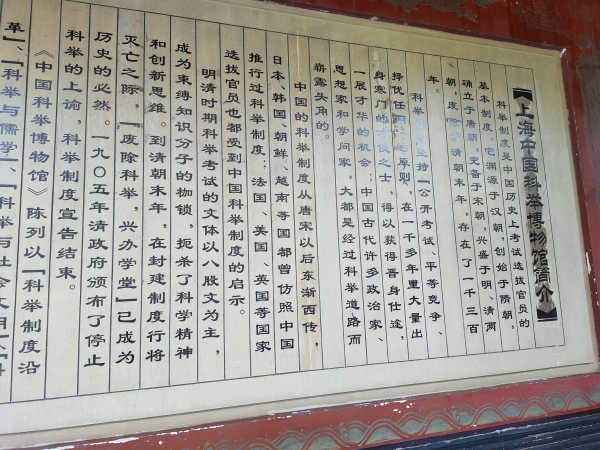 【上海中国科举博物馆简介】
科举制度是中国历史上考试选拔官员的
基本制度，它渊源于汉朝，创始于隋朝，
确立于唐朝，完备于宋朝，兴盛于明、清两
朝，废除于清朝末年，存在了一千三百
年。
科举 坚持"公开考试、平等竞争、
择优任 原则，在一千多年里大量出
身寒门的 之士，得以获得晋身仕途，
一展才华的机会；中国古代许多政治家、
思想家和学问家，大都是经过科举道路而
崭露头角的。
中国的科举制度从唐宋以后东渐西传，
日本、韩国、朝鲜、越南等国都曾仿照中国
推行过科举制度；法国、美国、英国等国家
选拔官员也都受到中国科举制度的启示。
明清时期科举考试的文体以八股文为主，
成为束缚知识分子的枷锁，扼杀了科学精神
和创新思维。到清朝末年，在封建制度行将
灭亡之际，"废除科举，兴办学堂"已成为
历史的必然。一九〇五年清政府颁布了停止
科举的上谕，科举制度宣告结束。
《中国科举博物馆》陈列以"科举制度沿
革"、"科举与儒学"、"科举与社会文明"、"科